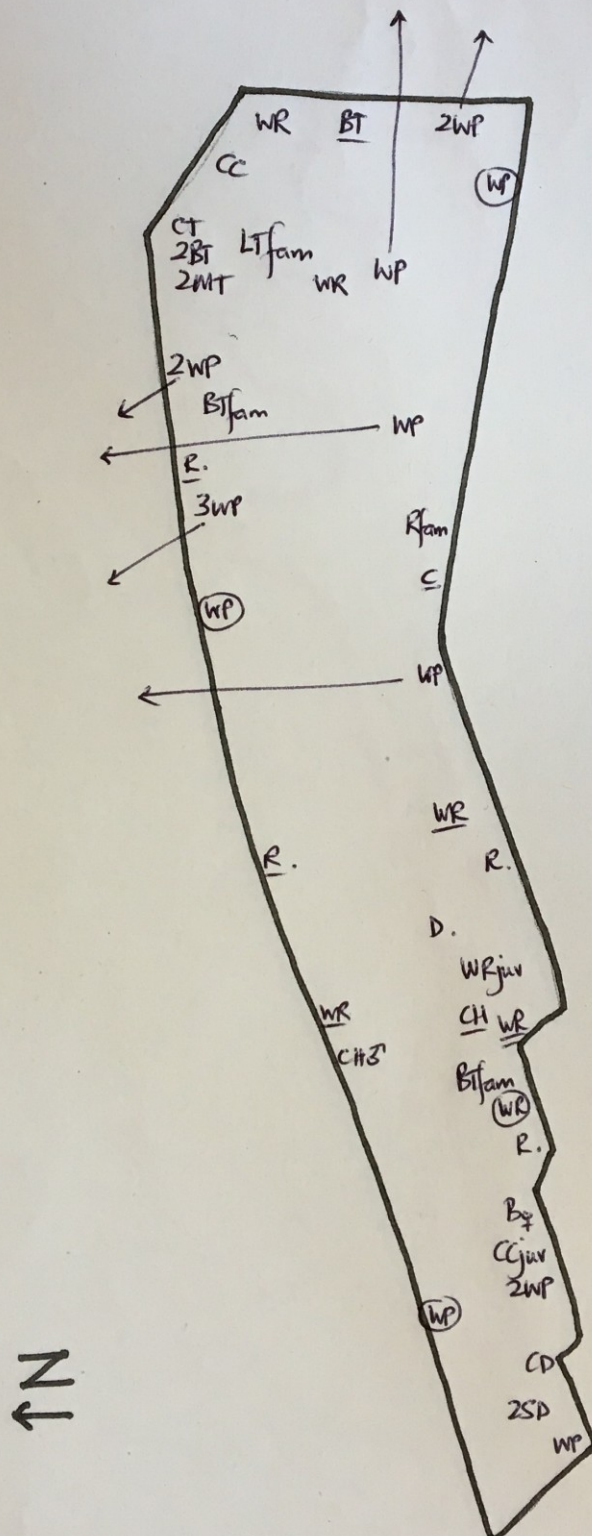 WR BT 2WP
CC
WP
CT
2BT LTfam
2MT WR WP
2WP
BTfam
WP
R.
3WP
Rfam
C
WP
WP
WR
R.
R.
D.
WRjuv
WR CH WR
CH♂
BTfam
WR
R.
B♀
CCjuv
2WP
WP
CD
N
2SD
WP